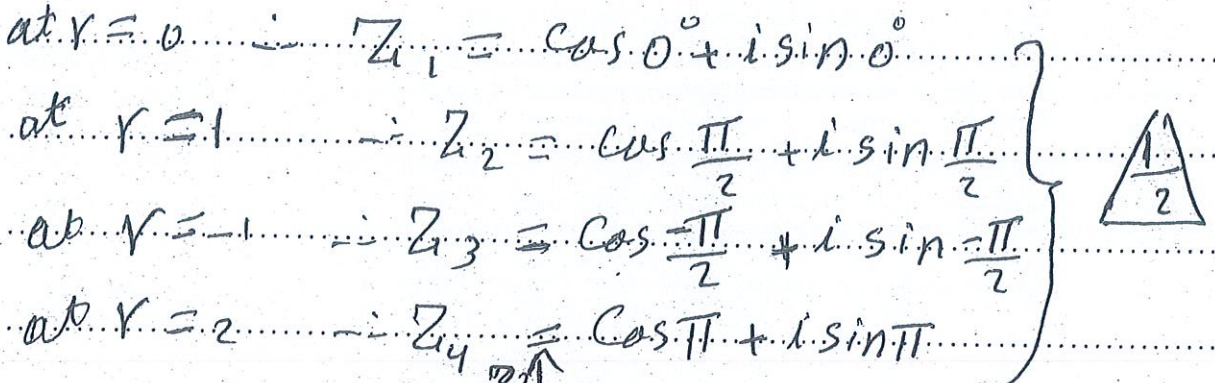 at r = 0 ∴ Z₁ = Cos 0° + i sin 0°
at r = 1 ∴ Z₂ = Cos π/2 + i sin π/2 1/2
at r = -1 ∴ Z₃ = Cos -π/2 + i sin -π/2
at r = 2 ∴ Z₄ = Cos π + i sin π